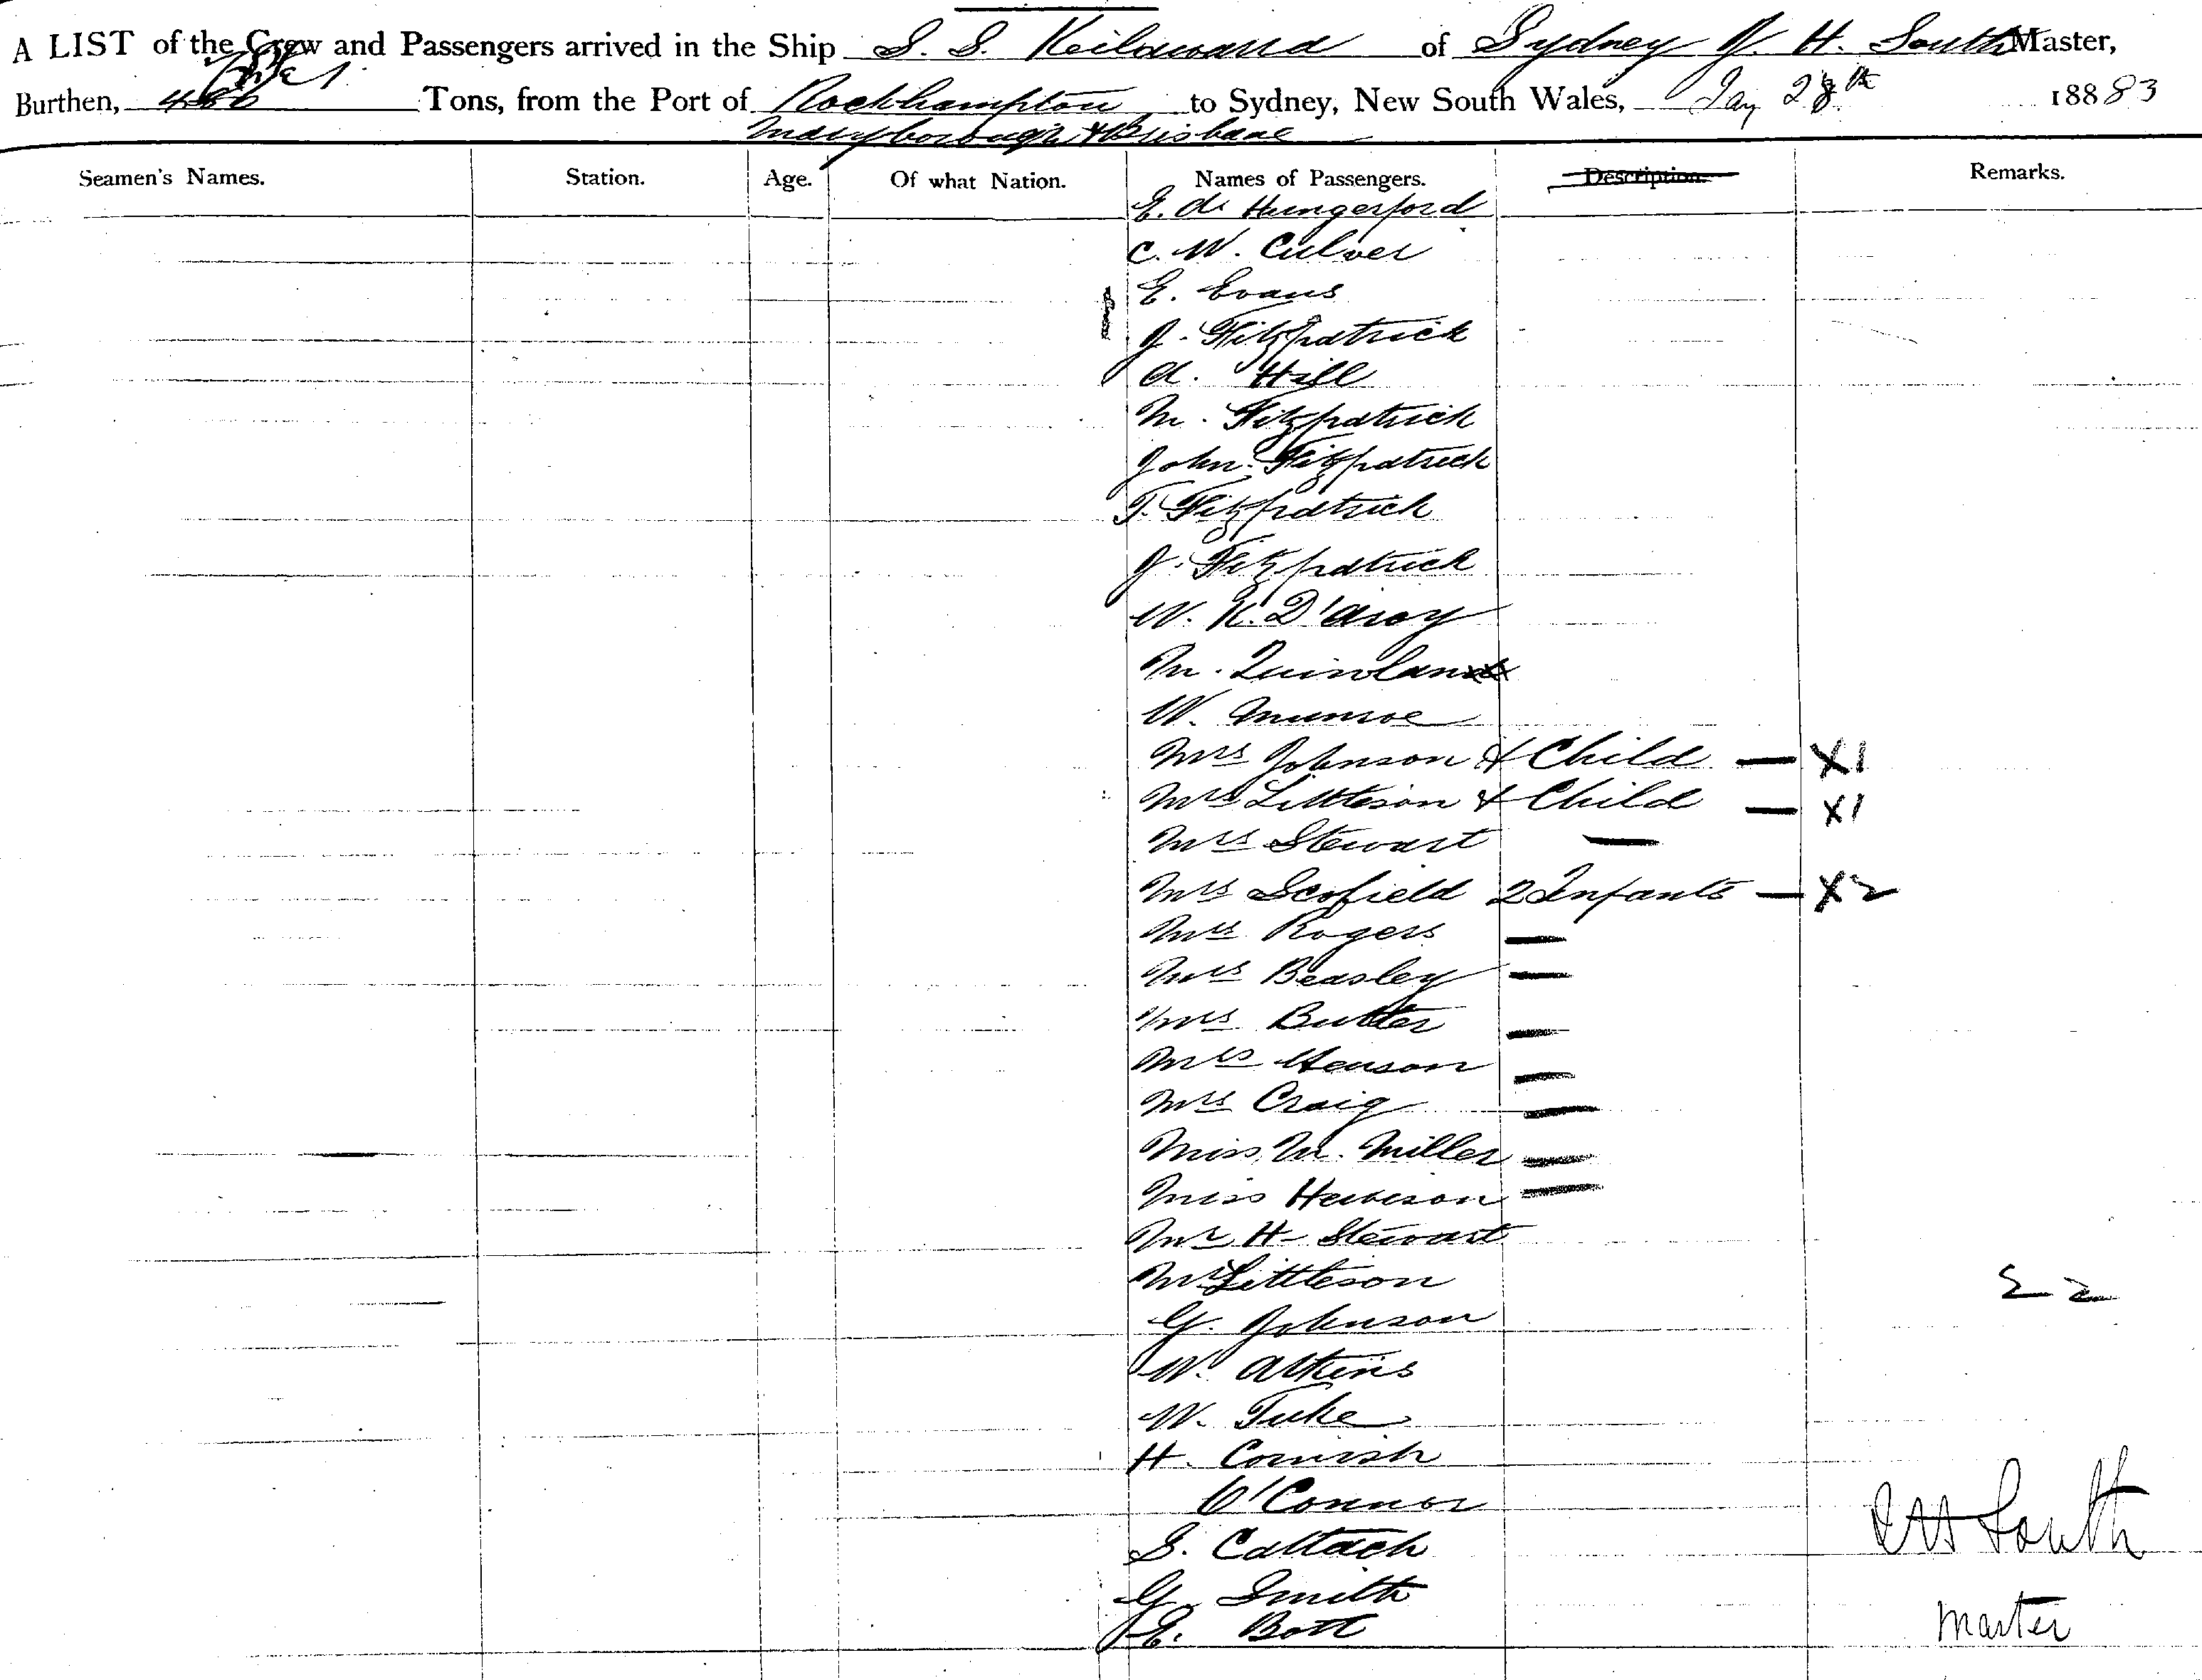 A LIST of the Crew and Passengers arrived in the Ship S. S. Keilawarra of Sydney J. H. South Master,
Burthen, 486 Tons, from the Port of Rockhampton to Sydney, New South Wales, Jany 28th 1883
Maryborough & Brisbane
Seamen's Names. Station. Age. Of what Nation. Names of Passengers. Description. Remarks.
E. de Hungerford
C. W. Culver
E. Evans
J. Fitzpatrick
A. Hill
M. Fitzpatrick
John Fitzpatrick
T. Fitzpatrick
J. Fitzpatrick
W. K. D'arcy
M. Quinlan
W. Munroe
Mrs Johnson & Child — X1
Mrs Littleson & Child — X1
Mrs Stewart —
Mrs Scofield 2 Infants — X2
Mrs Rogers —
Mrs Beasley —
Mrs Butter —
Mrs Henson —
Mrs Craig —
Miss M. Miller —
Miss Harrison —
Mr H Stewart
Mr Littleson 22
G. Johnson
W. Atkins
W. Tuke
H. Cornish
O'Connor
S. Cattach
J H South
G. Smith
Master
E. Bott